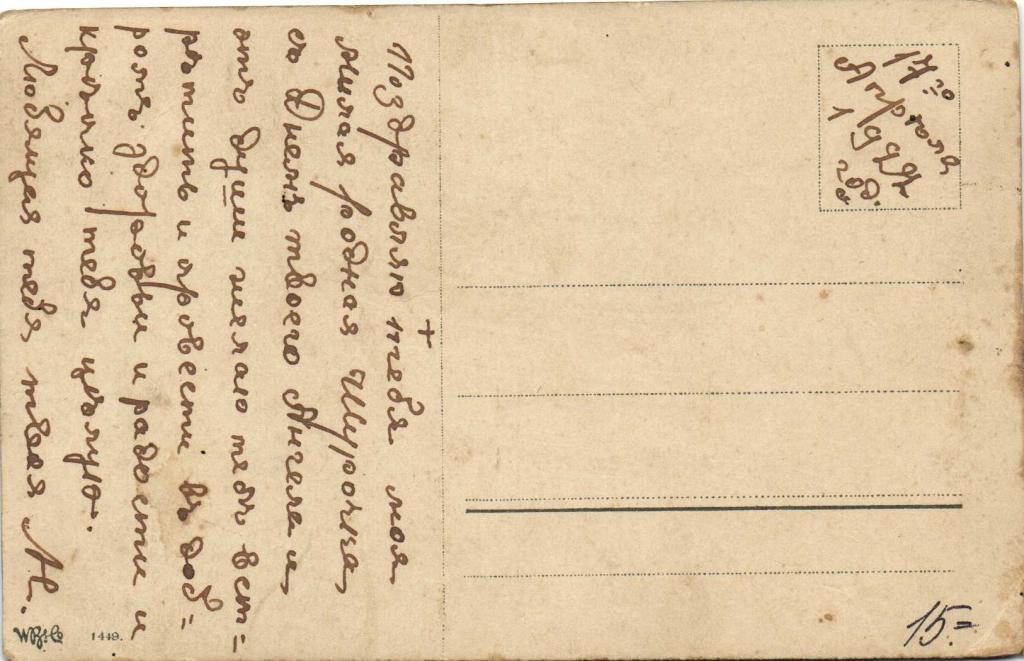 +
Поздравляю тебя моя
милая родная Шурочка,
съ Днемъ твоего Ангела и
отъ души желаю тебѣ вст=
рѣтить и провести въ доб=
ромъ здоровьи и радости и
крѣпко тебя цѣлую.
Любящая тебя твоя М.
17го
Апрѣля
1922
год.
15=
1449.